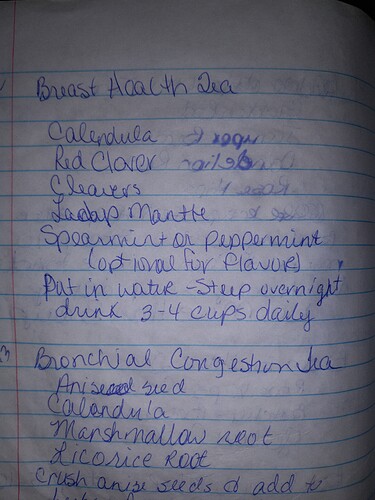 Breast Health Tea
Calendula
Red Clover
Cleavers
Ladys Mantle
Spearmint or peppermint
(optional for flavor)
Put in water - Steep overnight
drink 3-4 cups daily
Bronchial Congestion Tea
Aniseed seed
Calandula
Marshmallow root
Licorice Root
Crush anise seeds & add to